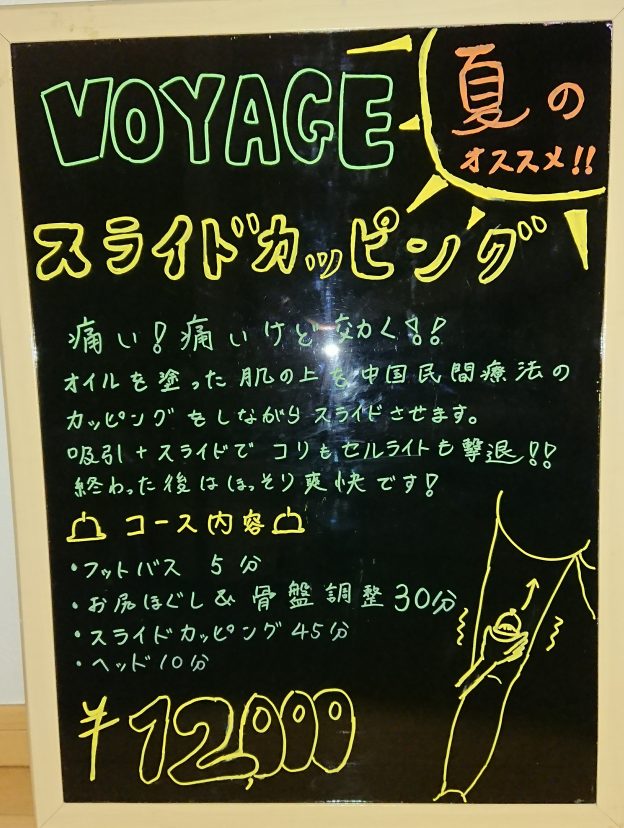 VOYAGE
夏の
オススメ!!
スライドカッピング
痛い!痛いけど効く!!
オイルを塗った肌の上を中国民間療法の
カッピングをしながらスライドさせます。
吸引+スライドでコリもセルライトも撃退!!
終わった後はほっそり爽快です!
コース内容
・フットバス 5分
・お尻ほぐし&骨盤調整30分
・スライドカッピング45分
・ヘッド10分
¥12,000